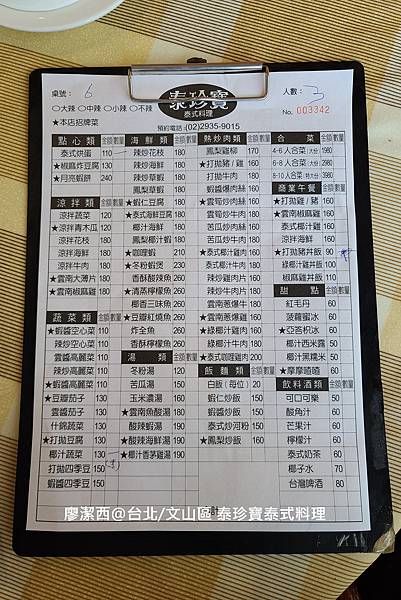 桌號： 6
泰珍寶
泰式料理
人數： 3
○大辣 ○中辣 ○小辣 ○不辣
No. 003342
★本店招牌菜
預約電話：(02)2935-9015
點心類 金額 數量
泰式烘蛋 110
★椒麻炸豆腐 130
★月亮蝦餅 240
涼拌類 金額 數量
涼拌蔬菜 120
★涼拌青木瓜 120
涼拌花枝 180
涼拌海鮮 180
涼拌牛肉 180
★雲南大薄片 180
★雲南椒麻雞 180
蔬菜類 金額 數量
★蝦醬空心菜 110
辣炒空心菜 110
雲醬高麗菜 150
辣炒高麗菜 150
★蝦醬高麗菜 150
★豆瓣茄子 130
雲醬茄子 130
什錦蔬菜 130
★打拋豆腐 130
椰汁蔬菜 150
打拋四季豆 150
蝦醬四季豆 150
海鮮類 金額 數量
辣炒花枝 180
辣炒海鮮 180
辣炒草蝦 180
鳳梨草蝦 180
★蝦仁豆腐 180
★泰式海鮮豆腐 180
椰汁海鮮 180
鳳梨椰汁蝦 180
★咖哩蝦 210
★冬粉蝦煲 230
香酥酸辣魚 260
★清蒸檸檬魚 260
椰香三味魚 260
★豆瓣紅燒魚 260
炸全魚 260
香酥檸檬魚 260
湯類 金額 數量
冬粉湯 120
苦瓜湯 150
玉米濃湯 160
★雲南魚酸湯 180
酸辣蝦湯 190
★酸辣海鮮湯 190
★椰汁香茅雞湯 190
熱炒肉類 金額 數量
鳳梨雞柳 170
★打拋豬/雞 160
打拋牛肉 180
蝦醬爆肉絲 160
★雲筍炒肉絲 160
★雲筍炒牛肉 180
苦瓜炒肉絲 160
苦瓜炒牛肉 180
★泰式椰汁雞 160
泰式椰汁牛肉 180
辣炒雞肉片 160
辣炒牛肉片 180
雲南蔥爆牛 180
★雲南蔥爆雞 160
★綠椰汁雞肉 160
綠椰汁牛肉 180
★泰式咖哩雞肉 200
飯麵類 金額 數量
白飯(每位) 20
蝦仁炒飯 150
蝦醬炒飯 150
泰式炒河粉 150
★鳳梨炒飯 160
合菜 金額
4-6人合菜(大份) 1980
6-8人合菜(大份) 2980
8-10人合菜(特大份) 3980
商業午餐 金額 數量
★打拋雞/豬 160
★雲南椒麻雞 160
★泰式椰汁雞 160
涼拌海鮮 160
★打拋豬井飯 90
綠椰汁雞井飯 100
椒麻雞井飯 110
甜點 金額 數量
紅毛丹 60
菠蘿蜜冰 60
★亞答枳冰 60
椰汁西米露 50
椰汁黑糯米 50
★摩摩喳喳 60
飲料酒類 金額 數量
可口可樂 50
酸角汁 60
芒果汁 60
檸檬汁 60
泰式奶茶 60
椰子水 70
台灣啤酒 80
總計
廖潔西@台北/文山區 泰珍寶泰式料理